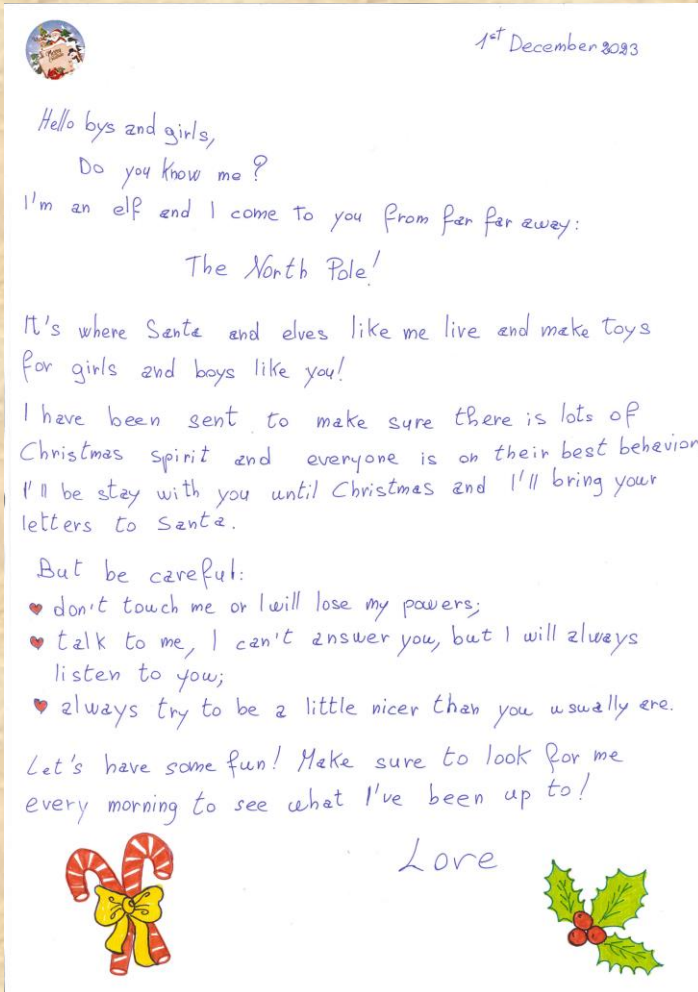 1st December 2023
Hello bys and girls,
Do you know me?
I'm an elf and I come to you from far far away:
The North Pole!
It's where Santa and elves like me live and make toys
for girls and boys like you!
I have been sent to make sure there is lots of
Christmas spirit and everyone is on their best behavior
I'll be stay with you until Christmas and I'll bring your
letters to Santa.
But be careful:
don't touch me or I will lose my powers;
talk to me, I can't answer you, but I will always
listen to you;
always try to be a little nicer than you usually are.
Let's have some fun! Make sure to look for me
every morning to see what I've been up to!
Love